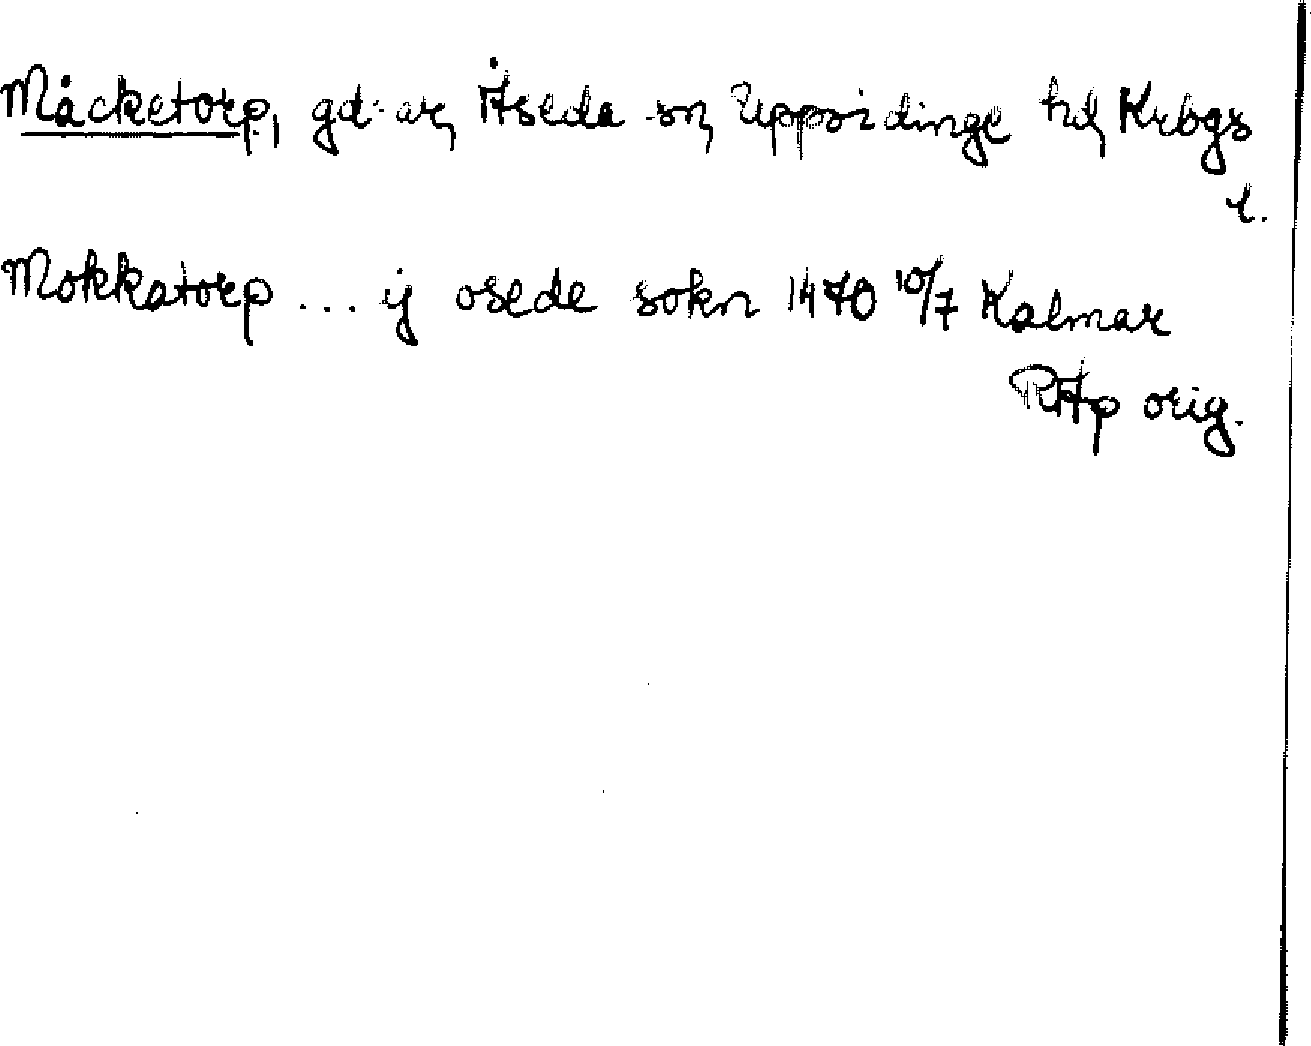 Måcketorp, gd-ar, Åseda sn, Uppvidinge hd, Krbgs
l.
Mokkatorp ... ij osede sokn 1470 10/7 Kalmar
RAp orig.